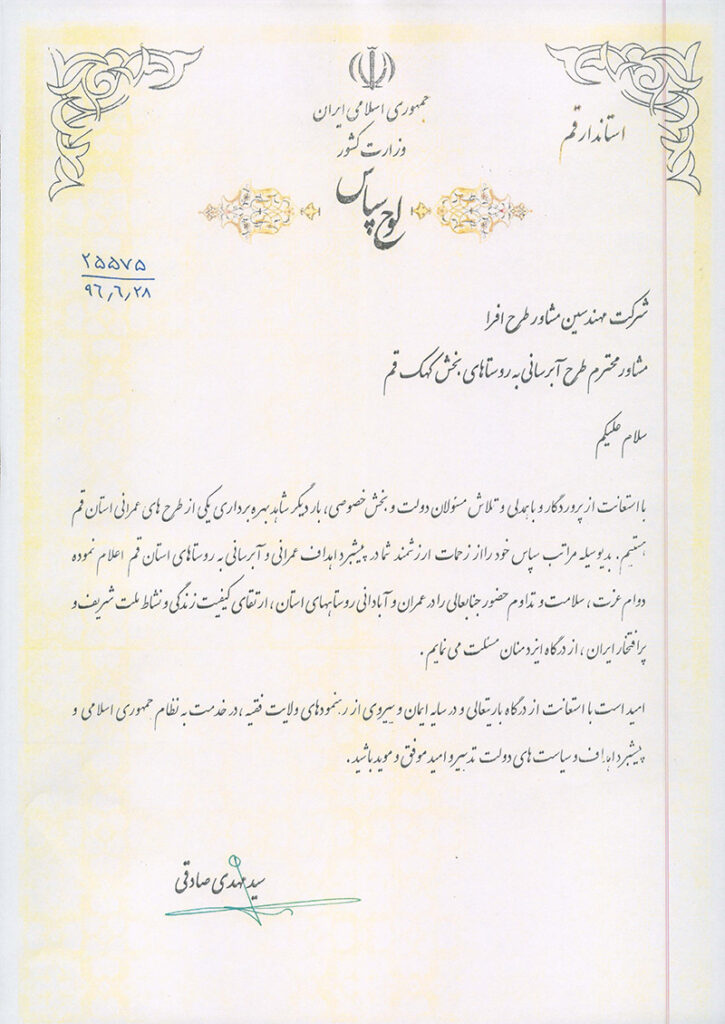 جمهوری اسلامی ایران
وزارت کشور
استاندار قم
لوح سپاس
۲۵۵۷۵
۹۶٫۶٫۲۸
شرکت مهندسین مشاور طرح افرا
مشاور محترم طرح آبرسانی به روستاهای بخش کهک قم
سلام علیکم
با استعانت از پروردگار و با همدلی و تلاش مسئولان دولت و بخش خصوصی، بار دیگر شاهد بهره برداری یکی از طرح های عمرانی استان قم
هستیم. بدیوسیله مراتب سپاس خود را از زحمات ارزشمند شما در پیشبرد اهداف عمرانی و آبرسانی به روستاهای استان قم اعلام نموده
دوام عزت، سلامت و تداوم حضور جنابعالی را در عمران و آبادانی روستاهای استان، ارتقای کیفیت زندگی و نشاط ملت شریف و
پرافتخار ایران، از درگاه ایزد منان مسئلت می نمایم.
امید است با استعانت از درگاه باریتعالی و در سایه ایمان و پیروی از رهنمودهای ولایت فقیه، در خدمت به نظام جمهوری اسلامی و
پیشبرد اهداف و سیاست های دولت تدبیر و امید موفق و موید باشید.
سید مهدی صادقی